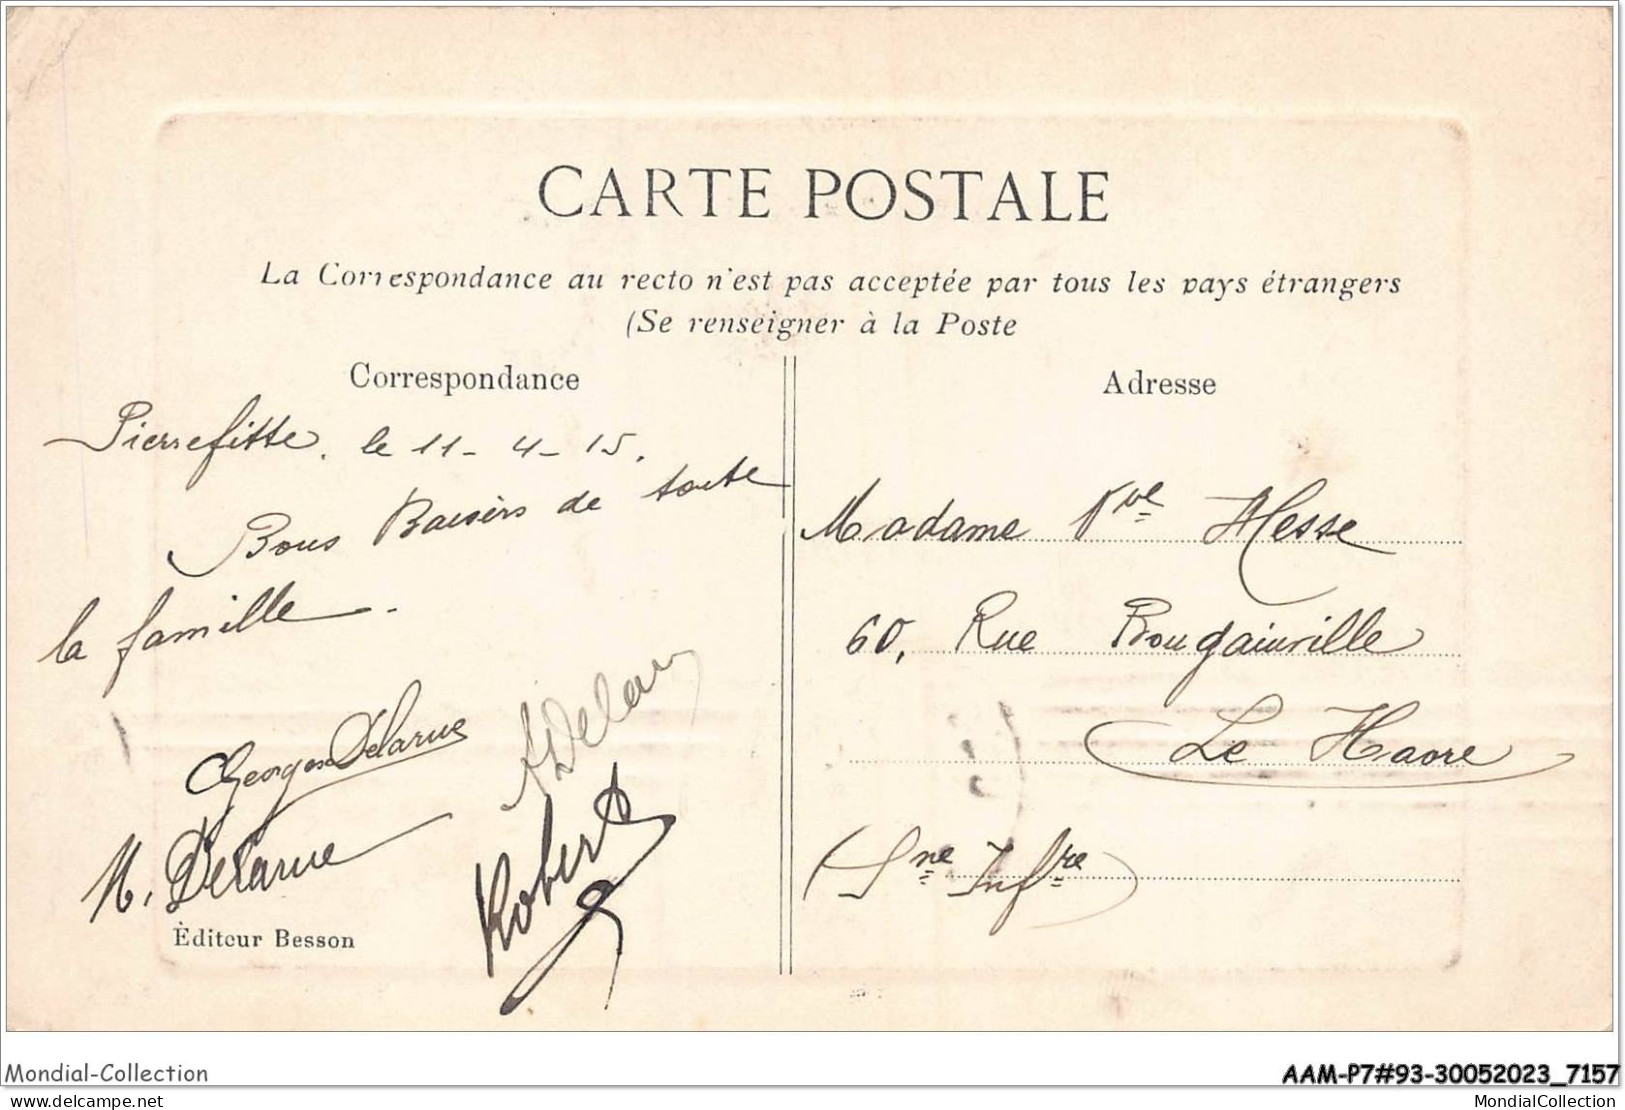 CARTE POSTALE
La Correspondance au recto n'est pas acceptée par tous les pays étrangers
(Se renseigner à la Poste
Correspondance
Pierrefitte, le 11-4-15.
Bons Baisers de toute
la famille.
Georges Delarue
A Delarue
M. Delarue
Robert
Éditeur Besson
Adresse
Madame Vve Hesse
60, Rue Bougainville
Le Havre
(Sne Infre)
Mondial-Collection
AAM-P7#93-30052023_7157
delcampe.net
MondialCollection